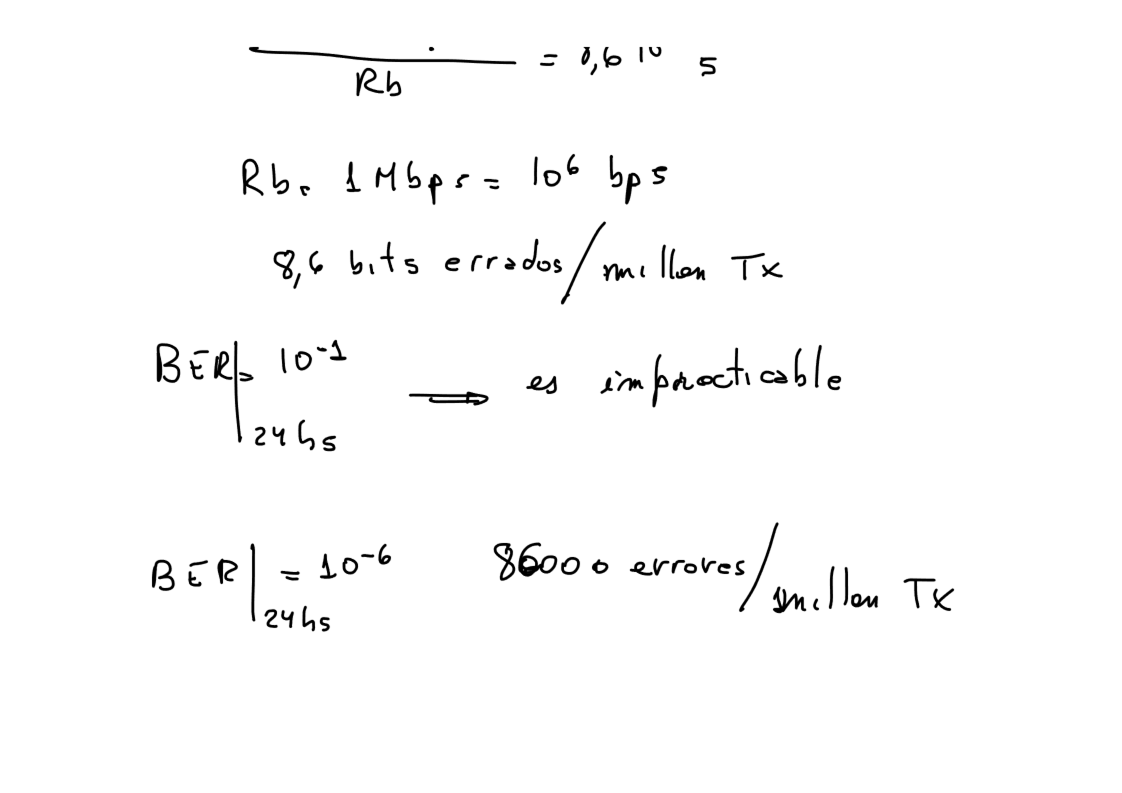 Rb = 8,6 10 s
Rb = 1 Mbps = 10⁶ bps
8,6 bits errados/millon Tx
BER|24hs = 10⁻¹ ⟹ es impracticable
BER|24hs = 10⁻⁶ 86000 errores/millon Tx